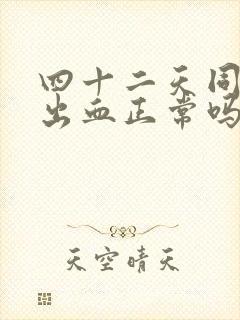 四十二天同
出血正常吗
天空晴天